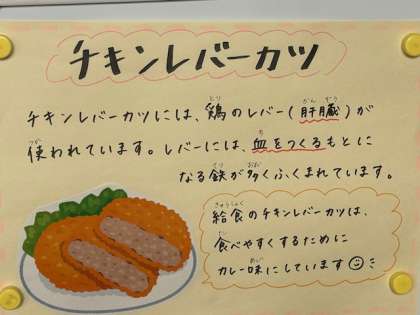 チキンレバーカツ
チキンレバーカツには、鶏のレバー(肝臓)が
使われています。レバーには、血をつくるもとに
なる鉄が多くふくまれています。
給食のチキンレバーカツは、
食べやすくするために
カレー味にしています